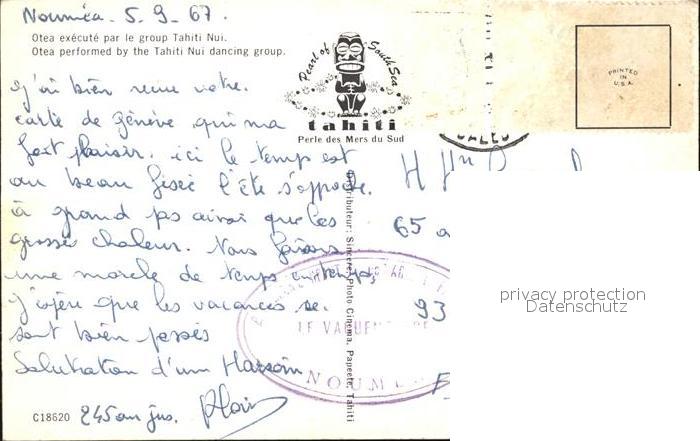 Nouméa. 5. 9. 67.
Otea exécuté par le group Tahiti Nui.
Otea performed by the Tahiti Nui dancing group.
Pearl of South Seas
tahiti
Perle des Mers du Sud
PRINTED
IN
U.S.A.
J'ai bien reçue votre
carte de Genève qui ma
fait plaisir. ici le temps est
au beau fisec l'été s'approche.
à grand pas ainsi que les
grosses chaleur. Nous faisons
une marche de temps en temps,
j'espère que les vacances se
sont bien passés
Salutation d'un
C18620 245 Alain
Distributeur: Sincere Photo Cinema, Papeete, Tahiti
65 a
93
LE VAGUEMESTRE
NOUMEA
privacy protection
Datenschutz